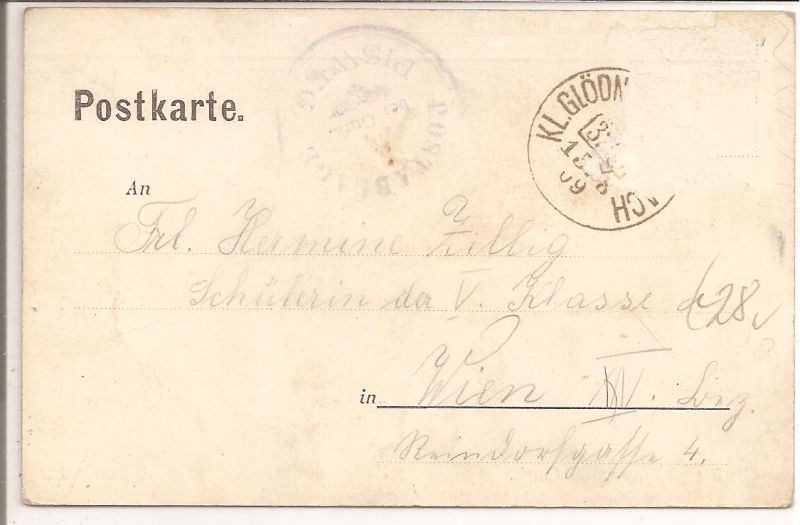 Postkarte.
POSTABLAGE
bei Gurk
KL.GLÖDN
ACH
15 8
09
An
Frl. Hermine Zillig
Schülerin der V. Klasse
28
in Wien XV. Bez.
Reindorfgasse 4.